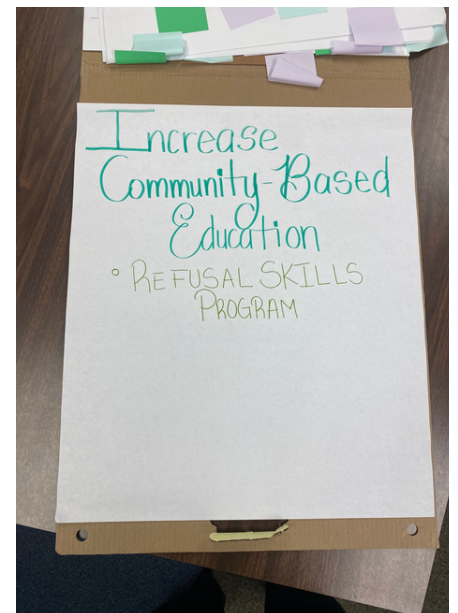 Increase
Community-Based
Education
° REFUSAL SKILLS
PROGRAM